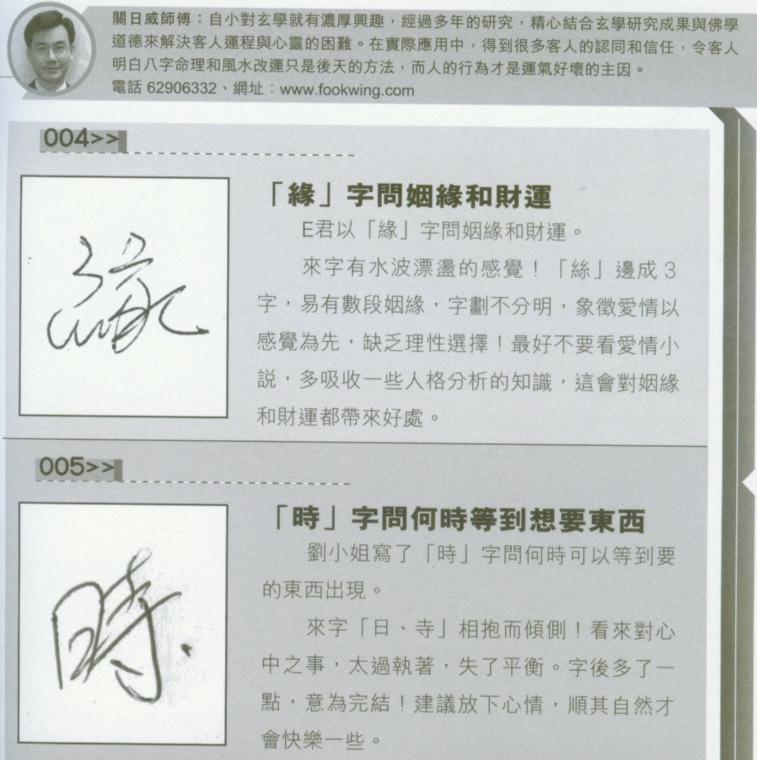 關日威師傅：自小對玄學就有濃厚興趣，經過多年的研究，精心結合玄學研究成果與佛學
道德來解決客人運程與心靈的困難。在實際應用中，得到很多客人的認同和信任，令客人
明白八字命理和風水改運只是後天的方法，而人的行為才是運氣好壞的主因。
電話 62906332、網址：www.fookwing.com
004>>
緣
「緣」字問姻緣和財運
E君以「緣」字問姻緣和財運。
來字有水波漂盪的感覺！「絲」邊成3
字，易有數段姻緣，字劃不分明，象徵愛情以
感覺為先，缺乏理性選擇！最好不要看愛情小
説，多吸收一些人格分析的知識，這會對姻緣
和財運都帶來好處。
005>>
時
「時」字問何時等到想要東西
劉小姐寫了「時」字問何時可以等到要
的東西出現。
來字「日、寺」相抱而傾側！看來對心
中之事，太過執著，失了平衡。字後多了一
點，意為完結！建議放下心情，順其自然才
會快樂一些。